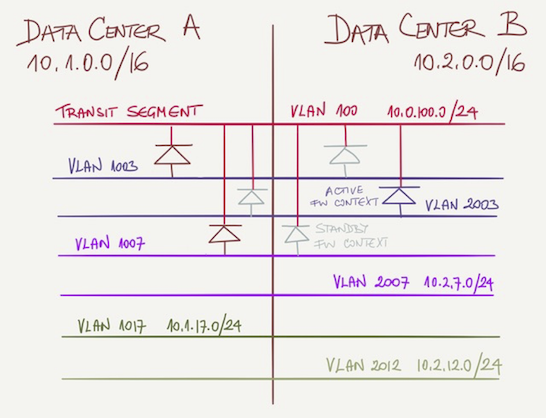 DATA CENTER A
10.1.0.0/16
DATA CENTER B
10.2.0.0/16
TRANSIT SEGMENT
VLAN 100
10.0.100.0/24
VLAN 1003
ACTIVE
FW CONTEXT
VLAN 2003
VLAN 1007
STANDBY
FW CONTEXT
VLAN 2007 10.2.7.0/24
VLAN 1017 10.1.17.0/24
VLAN 2012 10.2.12.0/24